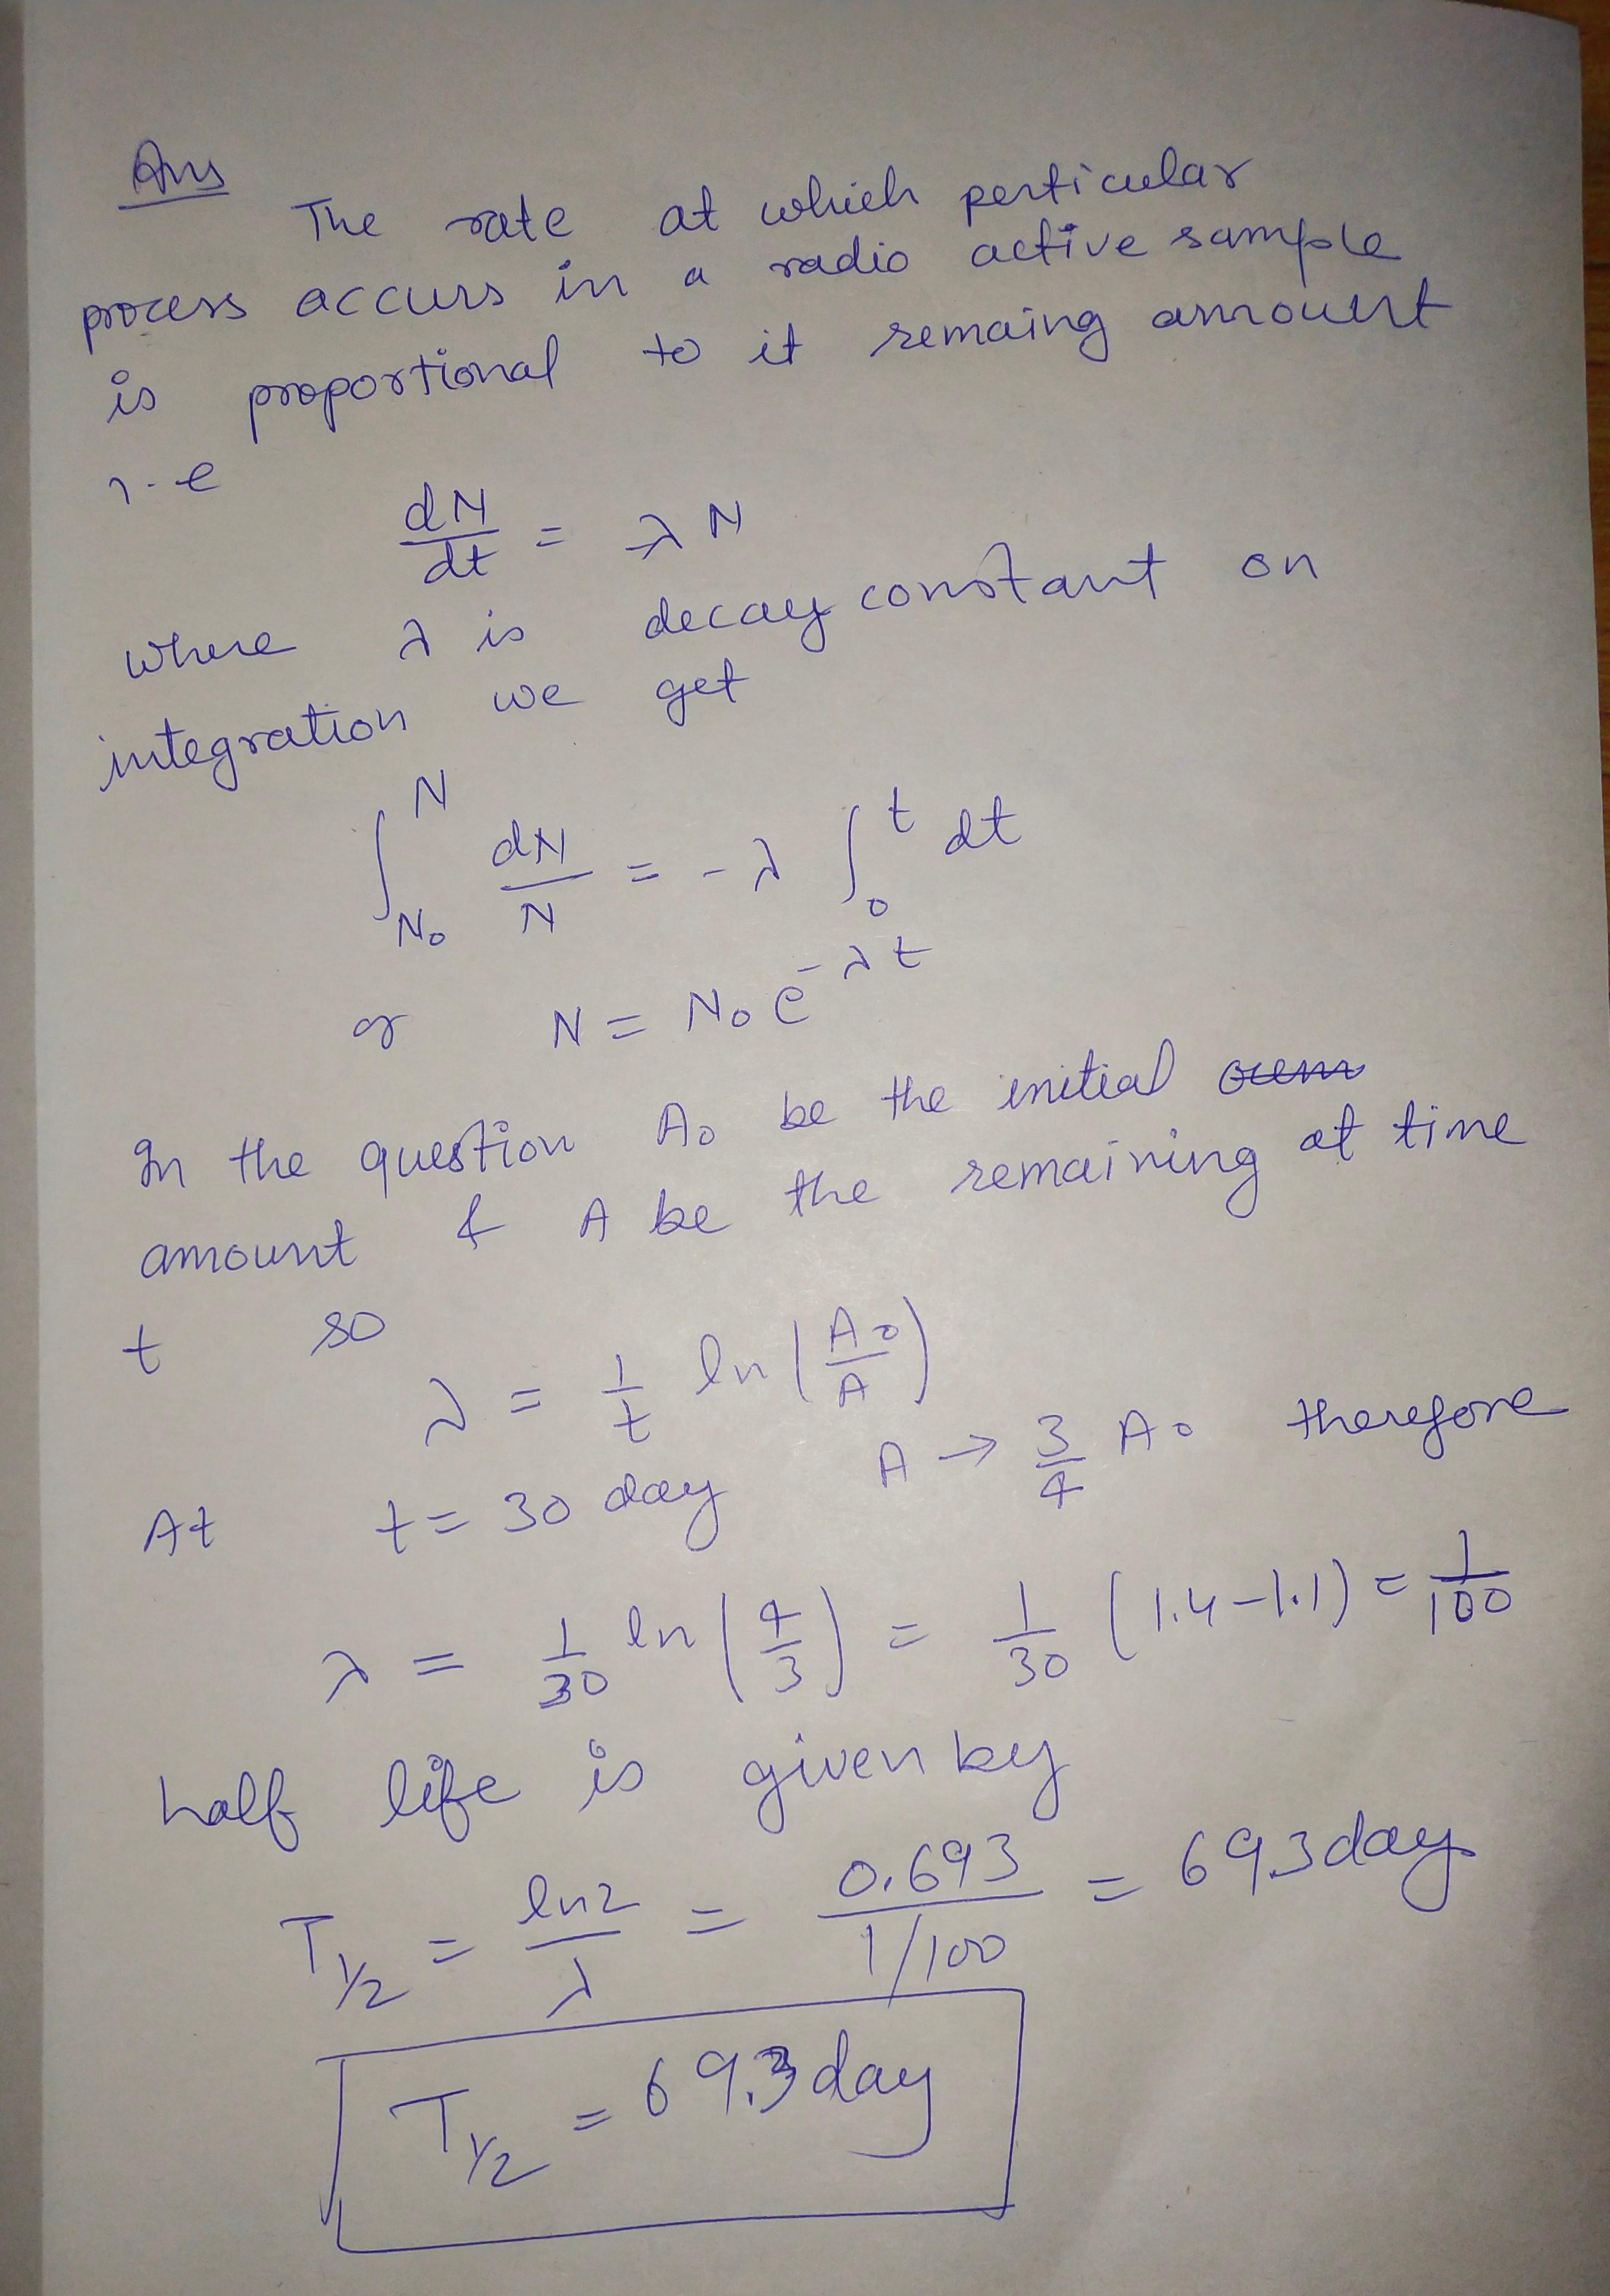 Ans
The rate at which perticular
process accurs in a radio active sample
is proportional to it remaing amount
i.e
dN/dt = -λN
where λ is decay constant on
integration we get
∫_{N₀}^{N} dN/N = -λ ∫_{0}^{t} dt
or N = N₀ e^{-λt}
In the question A₀ be the initial
amount & A be the remaining at time
t so
λ = 1/t ln(A₀/A)
At t = 30 day A → 3/4 A₀ therefore
λ = 1/30 ln(4/3) = 1/30 (1.4-1.1) = 1/100
half life is given by
T_{1/2} = ln2/λ = 0.693/(1/100) = 69.3 day
T_{1/2} = 69.3 day